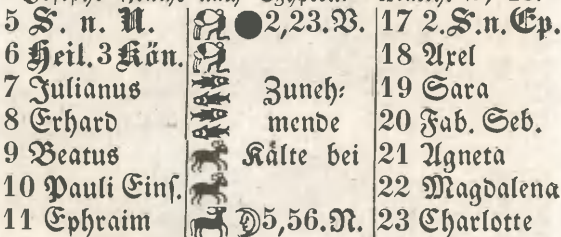 5 S. n. N. 2,23.V. 17 2.S.n.Ep.
6 Heil.3 Kön. 18 Axel
7 Julianus Zuneh- 19 Sara
8 Erhard mende 20 Fab. Seb.
9 Beatus Kälte bei 21 Agneta
10 Pauli Eins. 22 Magdalena
11 Ephraim 5,56.N. 23 Charlotte